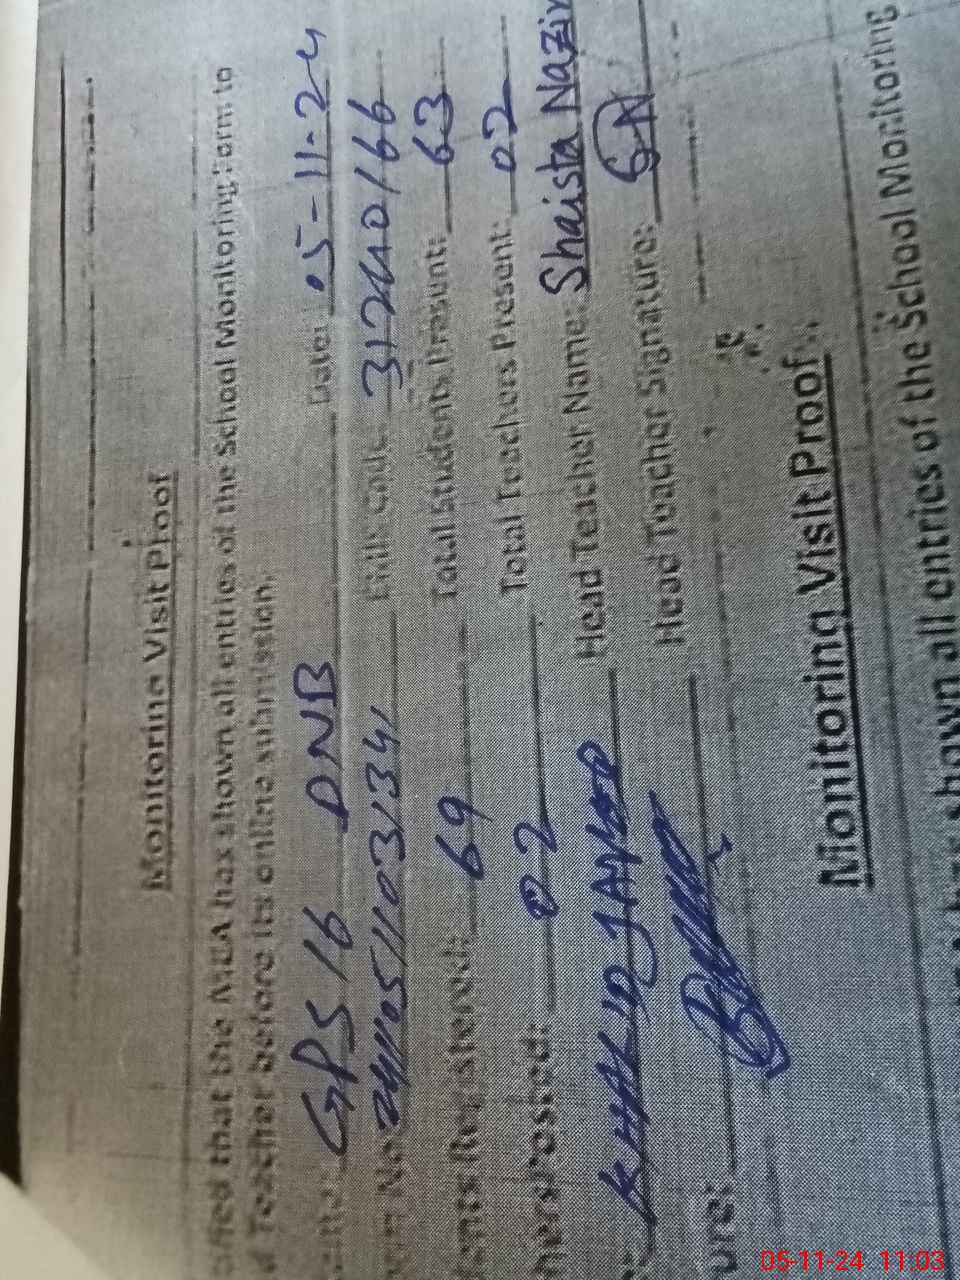 Monitoring Visit Proof
that the MEA has shown all entries of the School Monitoring Form to
Teacher before its online submission.
GPS 16 DNB Date: 05-11-24
EMIS Code 31240166
69 Total Students Present: 63
Posted: 02 Total Teachers Present: 02
KHALID JAVED Head Teacher Name: Shaista Nazir
Head Teacher Signature: SN
Monitoring Visit Proof
shown all entries of the School Monitoring
05-11-24 11:03